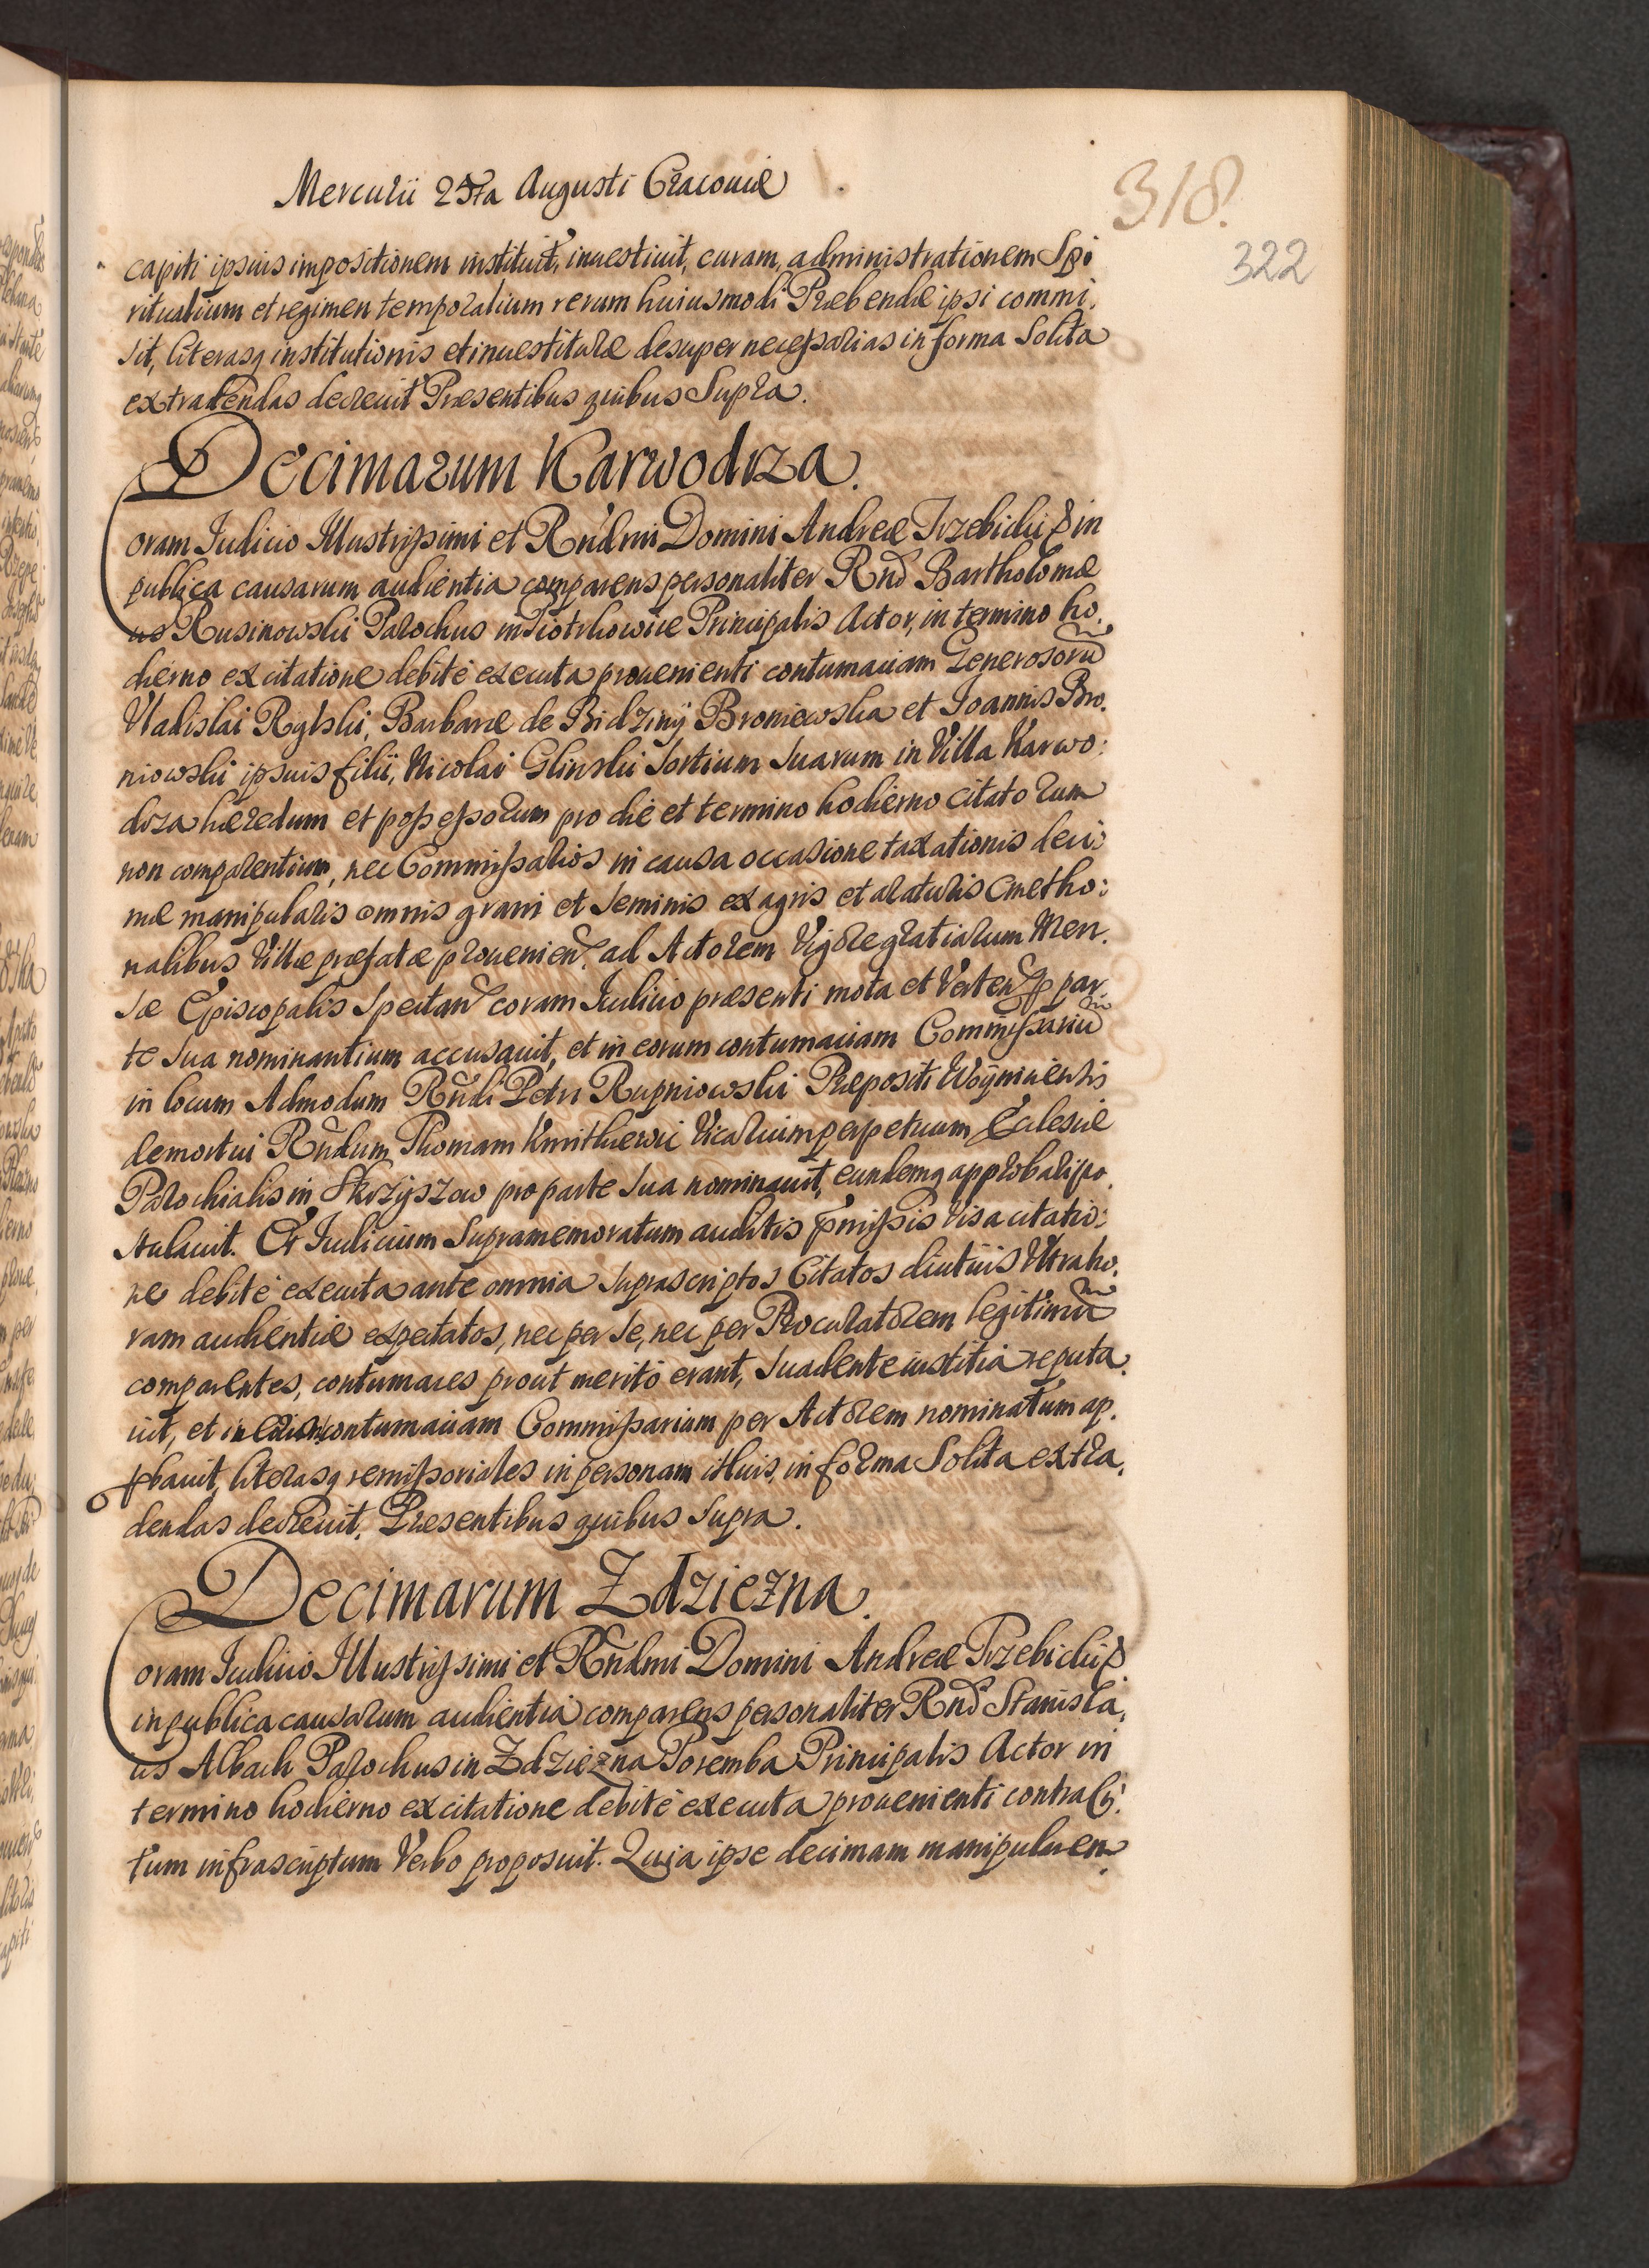 Mercurii 25ta Augusti Cracouiæ
318.
322
capiti ipsius impositionem instituit, inuestiuit, curam, administrationem Spi
ritualium et regimen temporalium rerum huiusmodi Præbendæ ipsi commi,
sit, literasq institutionis et inuestituræ desuper necessarias in forma Solita
extradendas decreuit Præsentibus quibus Supra.
Decimarum Karwodrza.
Coram Iudicio Illustrissimi et Rndmi Domini Andreæ Trzebicki & in
publica causarum audientia comparens personaliter Rnd Bartholomæ
us Rusinowski Parochus in Piotrkowice Principalis Actor, in termino ho,
dierno ex citatione debite executa prouenienti contumaciam Generosorū
Vladislai Rylski, Barbaræ de Bidziny Broniewska et Joannis Bro,
niowski ipsius filii, Nicolai Glinski Sortium Suarum in Villa Karwo:
drza hæredum et possessorum pro die et termino hodierno citatorum
non comparentium, nec Commissarios in causa occasione taxationis deci:
mæ manipularis omnis grani et Seminis ex agris et araturis Cmetho:
nalibus Villæ præfatæ prouenien. ad Actorem Vigore gratiarum Men,
sæ Episcopalis Spectan coram Iudicio præsenti mota et Verten p par
te Sua nominantium accusauit, et in eorum contumaciam Commissariū
in locum Admodum Rndi Petri Rupniowski Præpositi Woynicensis
demortui Rndum Thomam Kmitkiewic Vicarium perpetuum Ecclesiæ
Parochialis in Skrzyszow pro parte Sua nominauit, eundemq approbari po,
stulauit. Et Iudicium Supramemoratum auditis pmissis Visa citatio:
ne debite executa ante omnia Suprascriptos Citatos diutius Vltra ho,
ram audientiæ expectatos, nec per Se, nec per Procuratorem legitimū
comparentes, contumaces prout merito erant, Suadente iustitia reputa,
uit, et in eorum contumaciam Commissarium per Actorem nominatum ap,
pbauit, literasq remissoriales in personam illius, in forma Solita extra,
dendas decreuit. Præsentibus quibus Supra.
Decimarum Zdziezna.
Coram Iudicio Illustrissimi et Rndmi Domini Andreæ Trzebicki &
in publica causarum audientia comparens personaliter Rnd Stanisla,
us Albach Parochus in Zdziezna Poremba Principalis Actor in
termino hodierno ex citatione debite executa prouenienti contra Ci,
tum infrascriptum Verbo proposuit. Quia ipse decimam manipularem